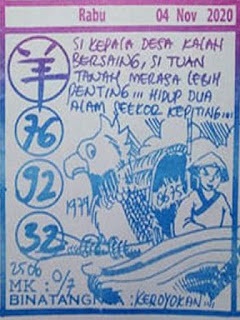 Rabu 04 Nov 2020
SI KEPALA DESA KALAH
BERSAING, SI TUAN
TANAH MERASA LEBIH
PENTING!!! HIDUP DUA
ALAM SEEKOR KEPITING....
羊
76
92
32
1979
6675
2506
MK : 0/7
BINATANGNYA : KEROYOKAN...